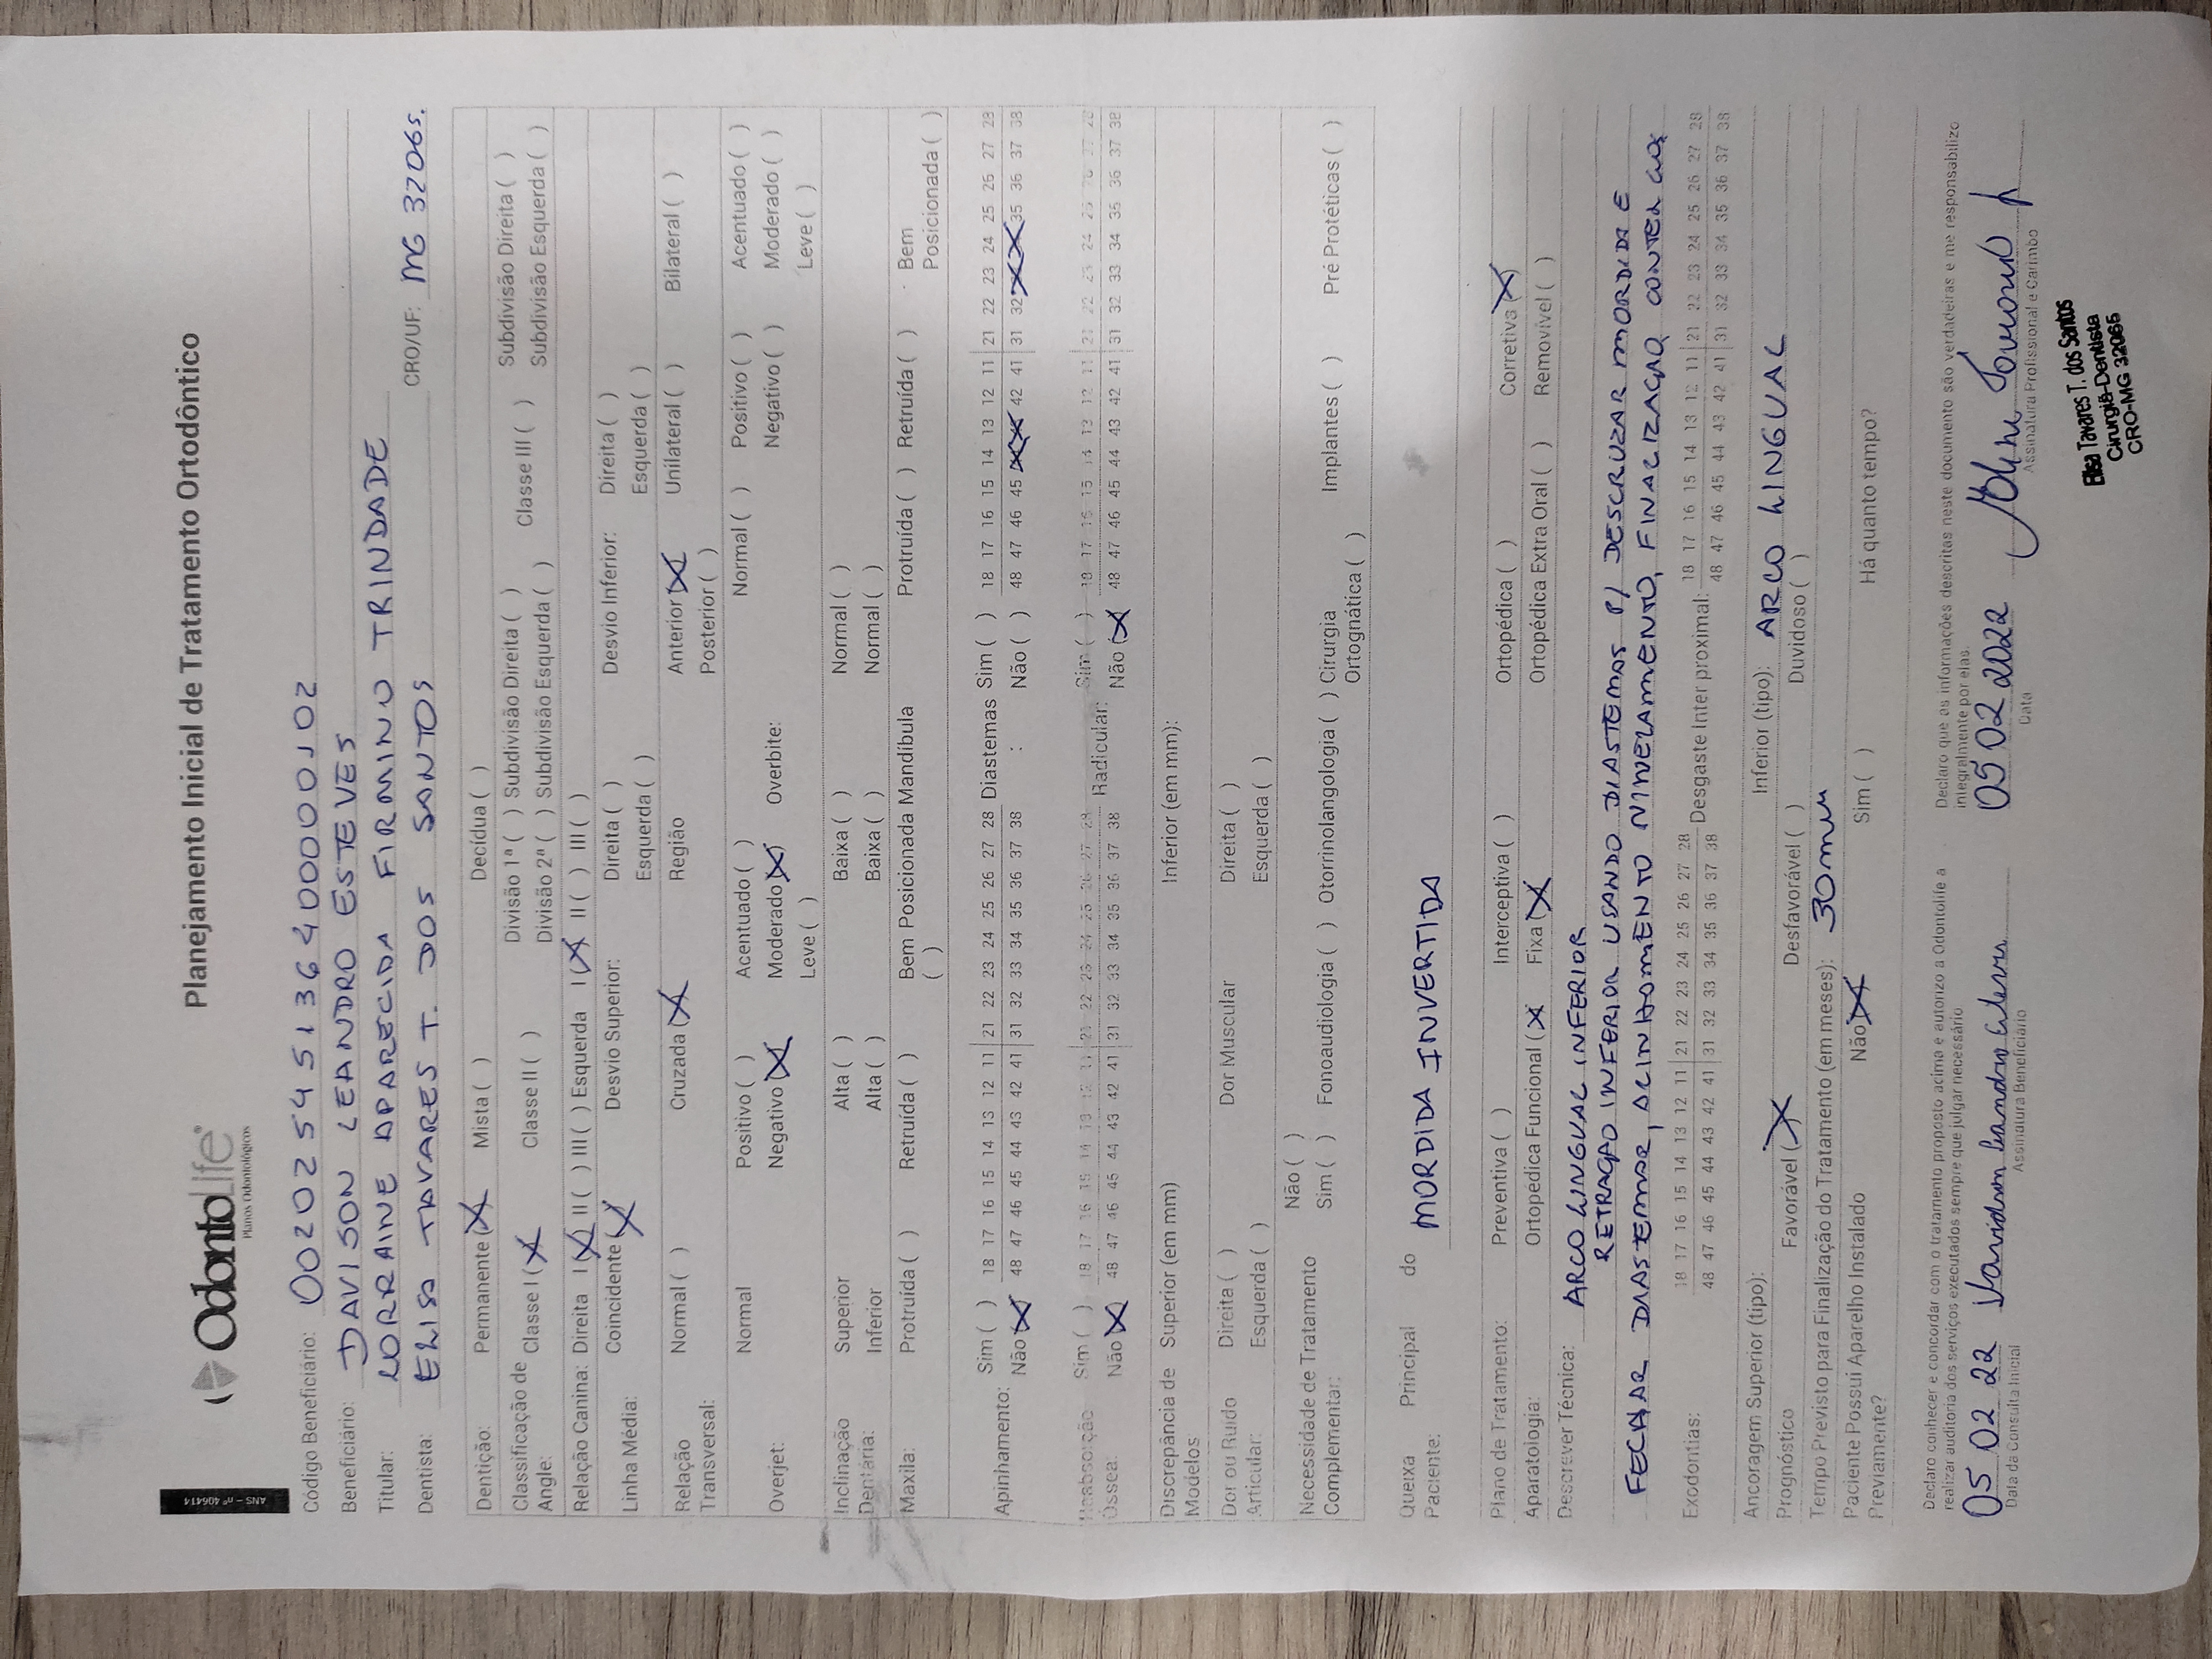 ANS - nº 406414
OdontoLife®
Planos Odontológicos
Planejamento Inicial de Tratamento Ortodôntico
Código Beneficiário: 00202545136400000102
Beneficiário: DAVISON LEANDRO ESTEVES
Titular: LORRAINE APARECIDA FIRMINO TRINDADE
Dentista: ELISA TAVARES T. DOS SANTOS CRO/UF: MG 32065.
Dentição: Permanente (X) Mista ( ) Decídua ( )
Classificação de Angle: Classe I (X) Classe II ( ) Divisão 1ª ( ) Subdivisão Direita ( ) Classe III ( ) Subdivisão Direita ( )
Divisão 2ª ( ) Subdivisão Esquerda ( ) Subdivisão Esquerda ( )
Relação Canina: Direita I (X) II ( ) III ( ) Esquerda I (X) II ( ) III ( )
Linha Média: Coincidente (X) Desvio Superior: Direita ( ) Desvio Inferior: Direita ( )
Esquerda ( ) Esquerda ( )
Relação Transversal: Normal ( ) Cruzada (X) Região Anterior (X) Unilateral ( ) Bilateral ( )
Posterior ( )
Overjet: Normal Positivo ( ) Acentuado ( ) Overbite: Normal ( ) Positivo ( ) Acentuado ( )
Negativo (X) Moderado (X) Negativo ( ) Moderado ( )
Leve ( ) Leve ( )
Inclinação Dentária: Superior Alta ( ) Baixa ( ) Normal ( )
Inferior Alta ( ) Baixa ( ) Normal ( )
Maxila: Protruída ( ) Retruída ( ) Bem Posicionada ( ) Mandíbula Protruída ( ) Retruída ( ) Bem Posicionada ( )
Apinhamento: Sim ( ) 18 17 16 15 14 13 12 11 | 21 22 23 24 25 26 27 28 Diastemas Sim ( ) 18 17 16 15 14 13 12 11 | 21 22 23 24 25 25 27 28
Não (X) 48 47 46 45 44 43 42 41 | 31 32 33 34 35 36 37 38 : Não ( ) 48 47 46 45 X X 42 41 | 31 32 X X 35 36 37 38
Reabsorção Óssea: Sim ( ) 18 17 16 15 14 13 12 11 | 21 22 23 24 25 26 27 28 Radicular: Sim ( ) 18 17 16 15 14 13 12 11 | 21 22 23 24 25 26 27 28
Não (X) 48 47 46 45 44 43 42 41 | 31 32 33 34 35 36 37 38 Não (X) 48 47 46 45 44 43 42 41 | 31 32 33 34 35 36 37 38
Discrepância de Modelos Superior (em mm) Inferior (em mm):
Dor ou Ruído Articular: Direita ( ) Dor Muscular Direita ( )
Esquerda ( ) Esquerda ( )
Necessidade de Tratamento Complementar: Não ( )
Sim ( ) Fonoaudiologia ( ) Otorrinolangologia ( ) Cirurgia Ortognática ( ) Implantes ( ) Pré Protéticas ( )
Queixa Principal do Paciente: MORDIDA INVERTIDA
Plano de Tratamento: Preventiva ( ) Interceptiva ( ) Ortopédica ( ) Corretiva (X)
Aparatologia: Ortopédica Funcional (X Fixa (X) Ortopédica Extra Oral ( ) Removível ( )
Descrever Técnica: ARCO LINGUAL INFERIOR
RETRAÇÃO INFERIOR USANDO DIASTEMAS P/ DESCRUZAR MORDIDA E
FECHAR DIASTEMAS, ALINHAMENTO NIVELAMENTO, FINALIZAÇÃO CONTER
Exodontias: 18 17 16 15 14 13 12 11 | 21 22 23 24 25 26 27 28 Desgaste Inter proximal: 18 17 16 15 14 13 12 11 | 21 22 23 24 25 26 27 28
48 47 46 45 44 43 42 41 | 31 32 33 34 35 36 37 38 48 47 46 45 44 43 42 41 | 31 32 33 34 35 36 37 38
Ancoragem Superior (tipo): Inferior (tipo): ARCO LINGUAL
Prognóstico Favorável (X) Desfavorável ( ) Duvidoso ( )
Tempo Previsto para Finalização do Tratamento (em meses): 30
Paciente Possuí Aparelho Instalado Previamente? Não (X) Sim ( ) Há quanto tempo?
Declaro conhecer e concordar com o tratamento proposto acima e autorizo a Odontolife a
realizar auditoria dos serviços executados sempre que julgar necessário
Declaro que as informações descritas neste documento são verdadeiras e me responsabilizo
integralmente por elas.
05 02 22 Davidson Leandro Esteves 05 02 2022
Data da Consulta Inicial Assinatura Beneficiário Data Assinatura Profissional e Carimbo
Elisa Tavares T. dos Santos
Cirurgiã-Dentista
CRO-MG 32065